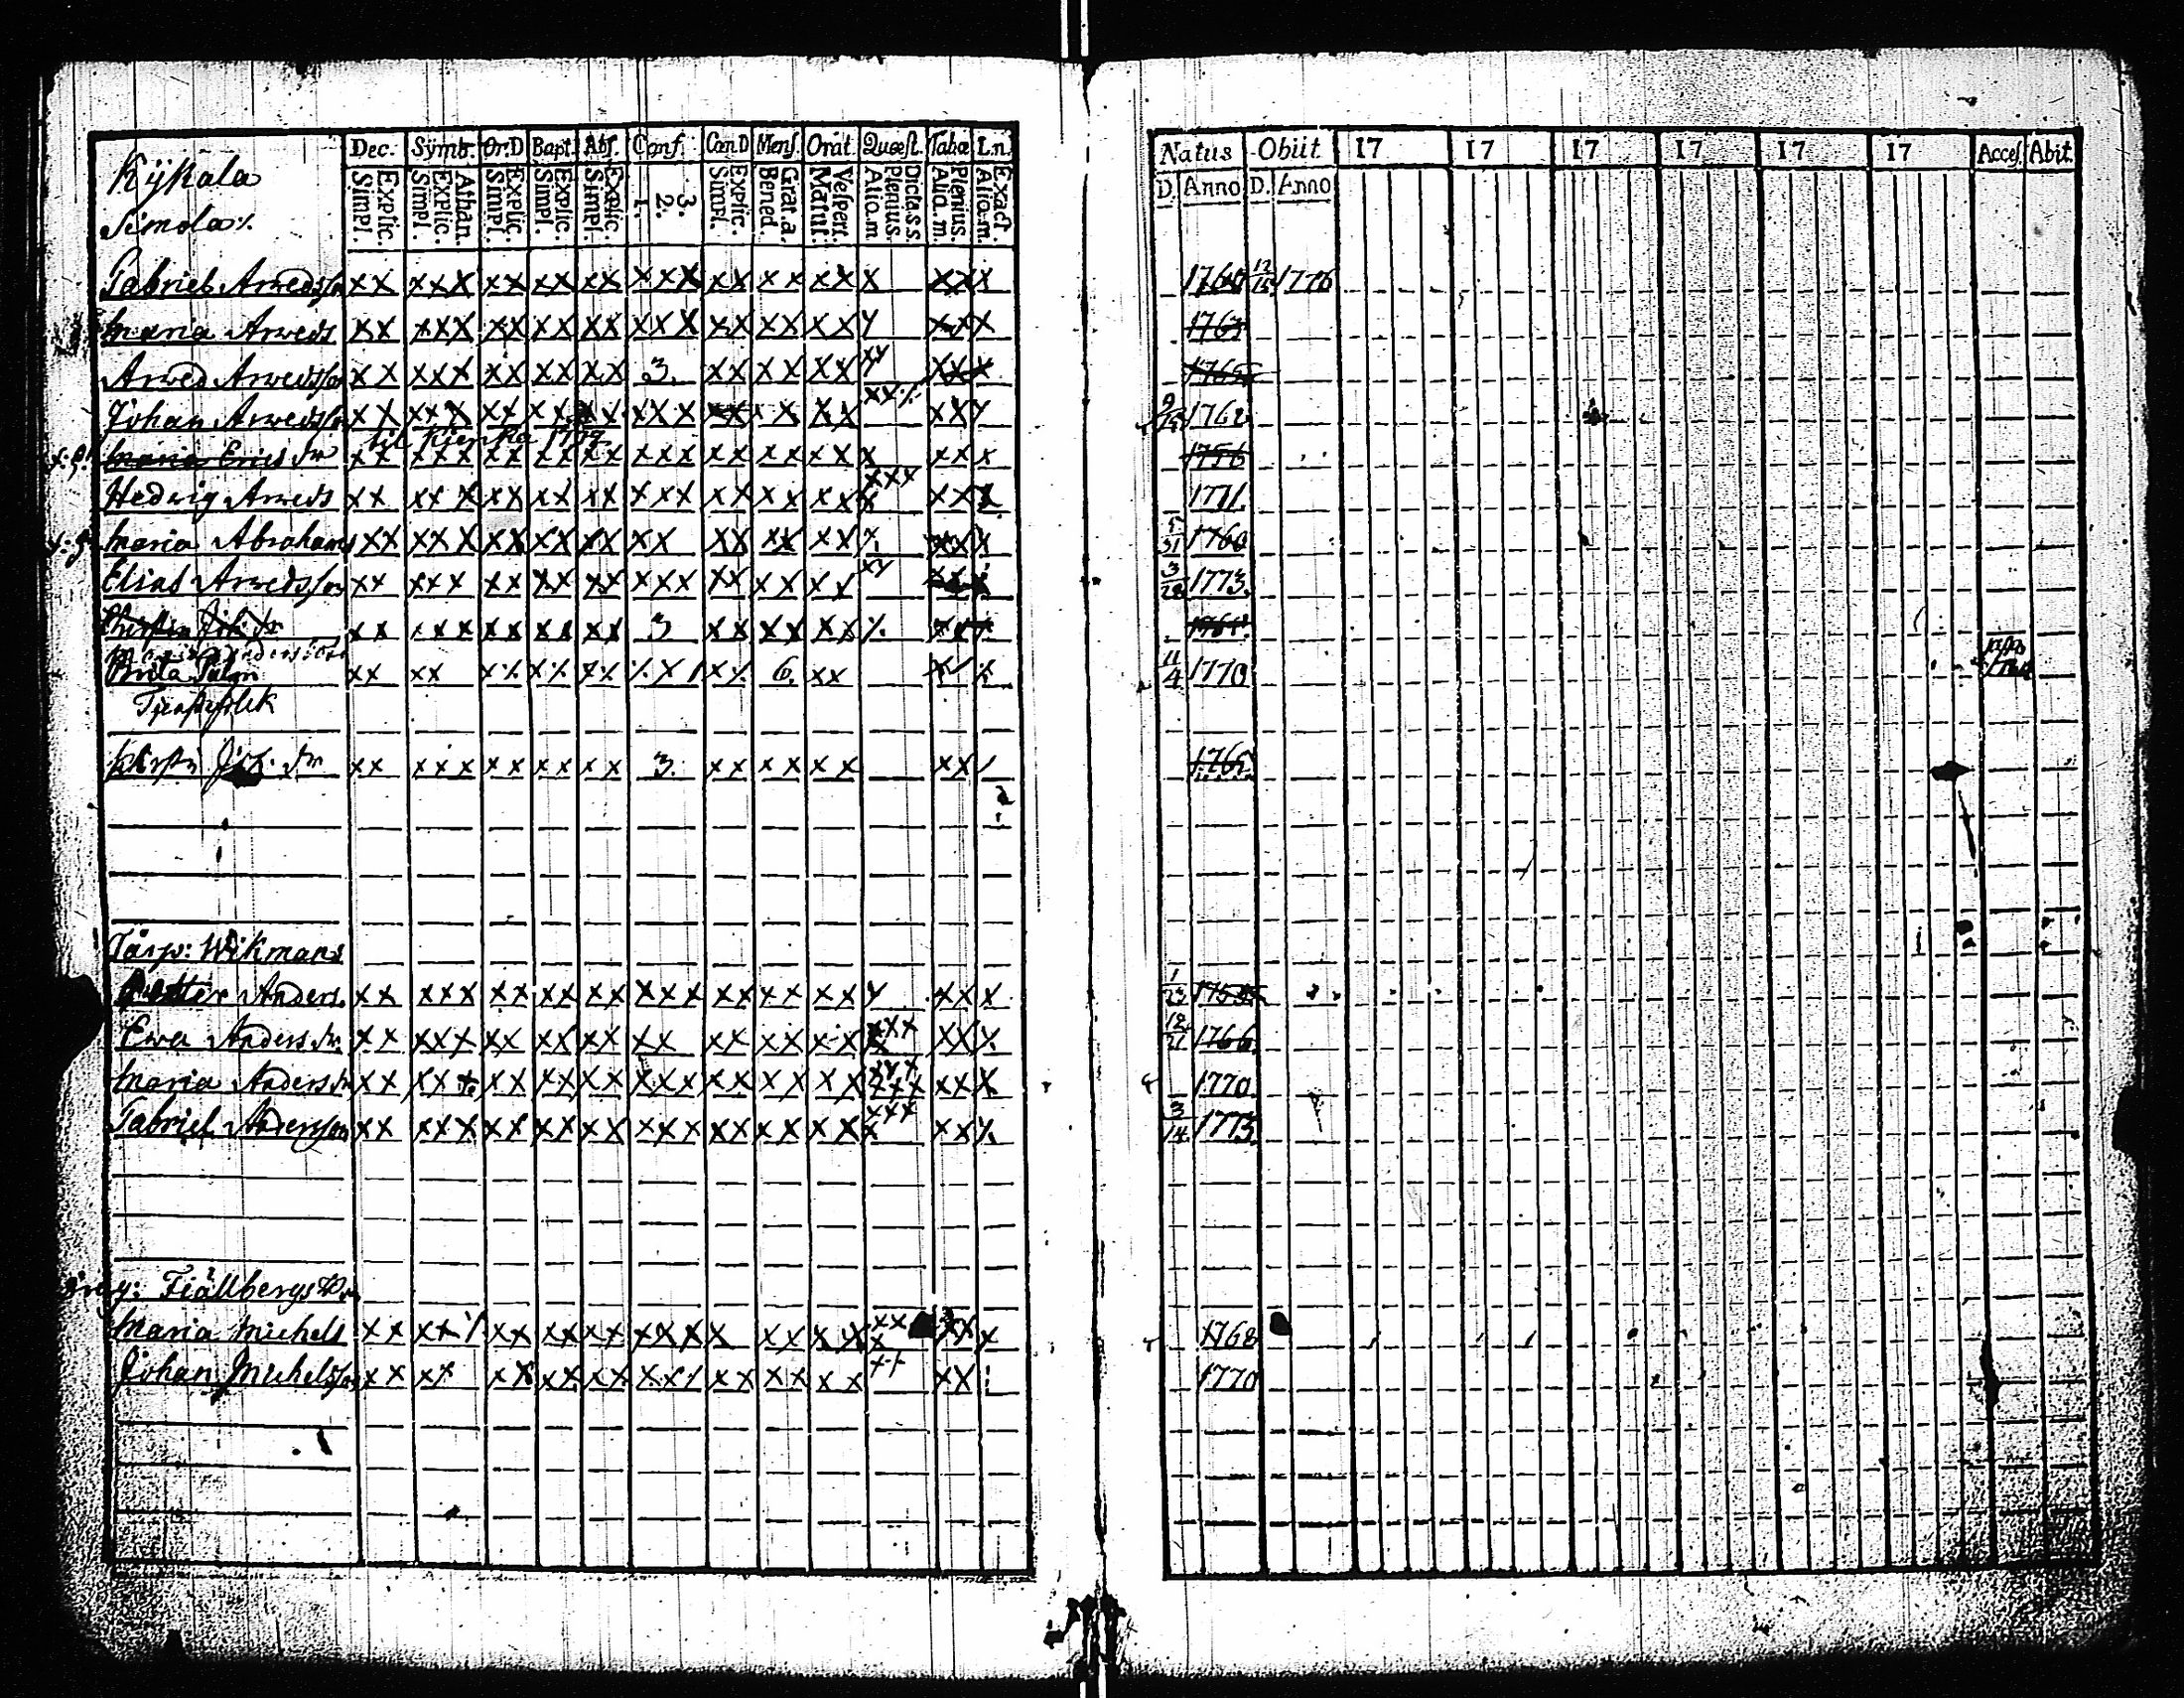 Kÿkala
Simola
Dec. Symb. Or.D Bapt. Abs. Conf. Cœn.D Mens. Orat. Quæst. Tabæ L.n.
Explic. Simpl. Athan. Explic. Simpl. Explic. Simpl. Explic. Simpl. Explic. Simpl. 3. 2. 1. Explic. Simpl. Grat.a. Bened. Vespert. Matut. Dicta.s.s. Plenius. Aliq.m Plenius. Aliq.m. Exact. Aliq.m.
Natus Obiit 17 17 17 17 17 17 Acces. Abit.
D. Anno D. Anno
Gabriel Arvedsson xx xxx xx xx xx xxx xx xx xx x xx x 1760 12/15 1776
Maria Arveds xx xxx xx xx xx xxx xx xx xx x xx x 1763
Arved Arvedsson xx xxx xx xx xx 3. xx xx xx xx xx x 1765
Johan Arvedsson xx xxx xx xx xx xxx xx xx xx xx xx x 1768
til 1779
Maria Erics dr xx xxx xx xx xx xxx xx xx xx x xx x 1756
Hedvig Arveds xx xxx xx xx xx xxx xx xx xx xxx x xx x 1771.
Maria Abrahams xx xxx xx xx xx xx xx xx xx x xx x 5/31 1760
Elias Arvedsson xx xxx xx xx xx xxx xx xx xx xx xx x 3/28 1773.
xx xxx xx xx xx 3 xx xx xx xx x
Brita Palm xx xx 6. xx 11/4 1770
Kirstin Joh. dr xx xxx xx xx xx 3. xx xx xx xx 1765.
Torp: Wikmans
Petter Anders. xx xxx xx xx xx xxx xx xx xx x xx x 1/23
Ewa Anders dr. xx xxx xx xx xx xx xx xx xx xxx x xx x 12/21 1766.
Maria Anders dr xx xxx xx xx xx xxx xx xx xx xxx xxx xx x 1770.
Gabriel Andersson xx xxx xx xx xx xxx xx xx xx xxx x xx x 3/14 1773.
Fiällbergs
Maria Michels xx xx xx xx xx xxx x xx xx xx x xx x 1768
Johan Michelsson xx xx xx xx xx xx xx xx xx xx 1770